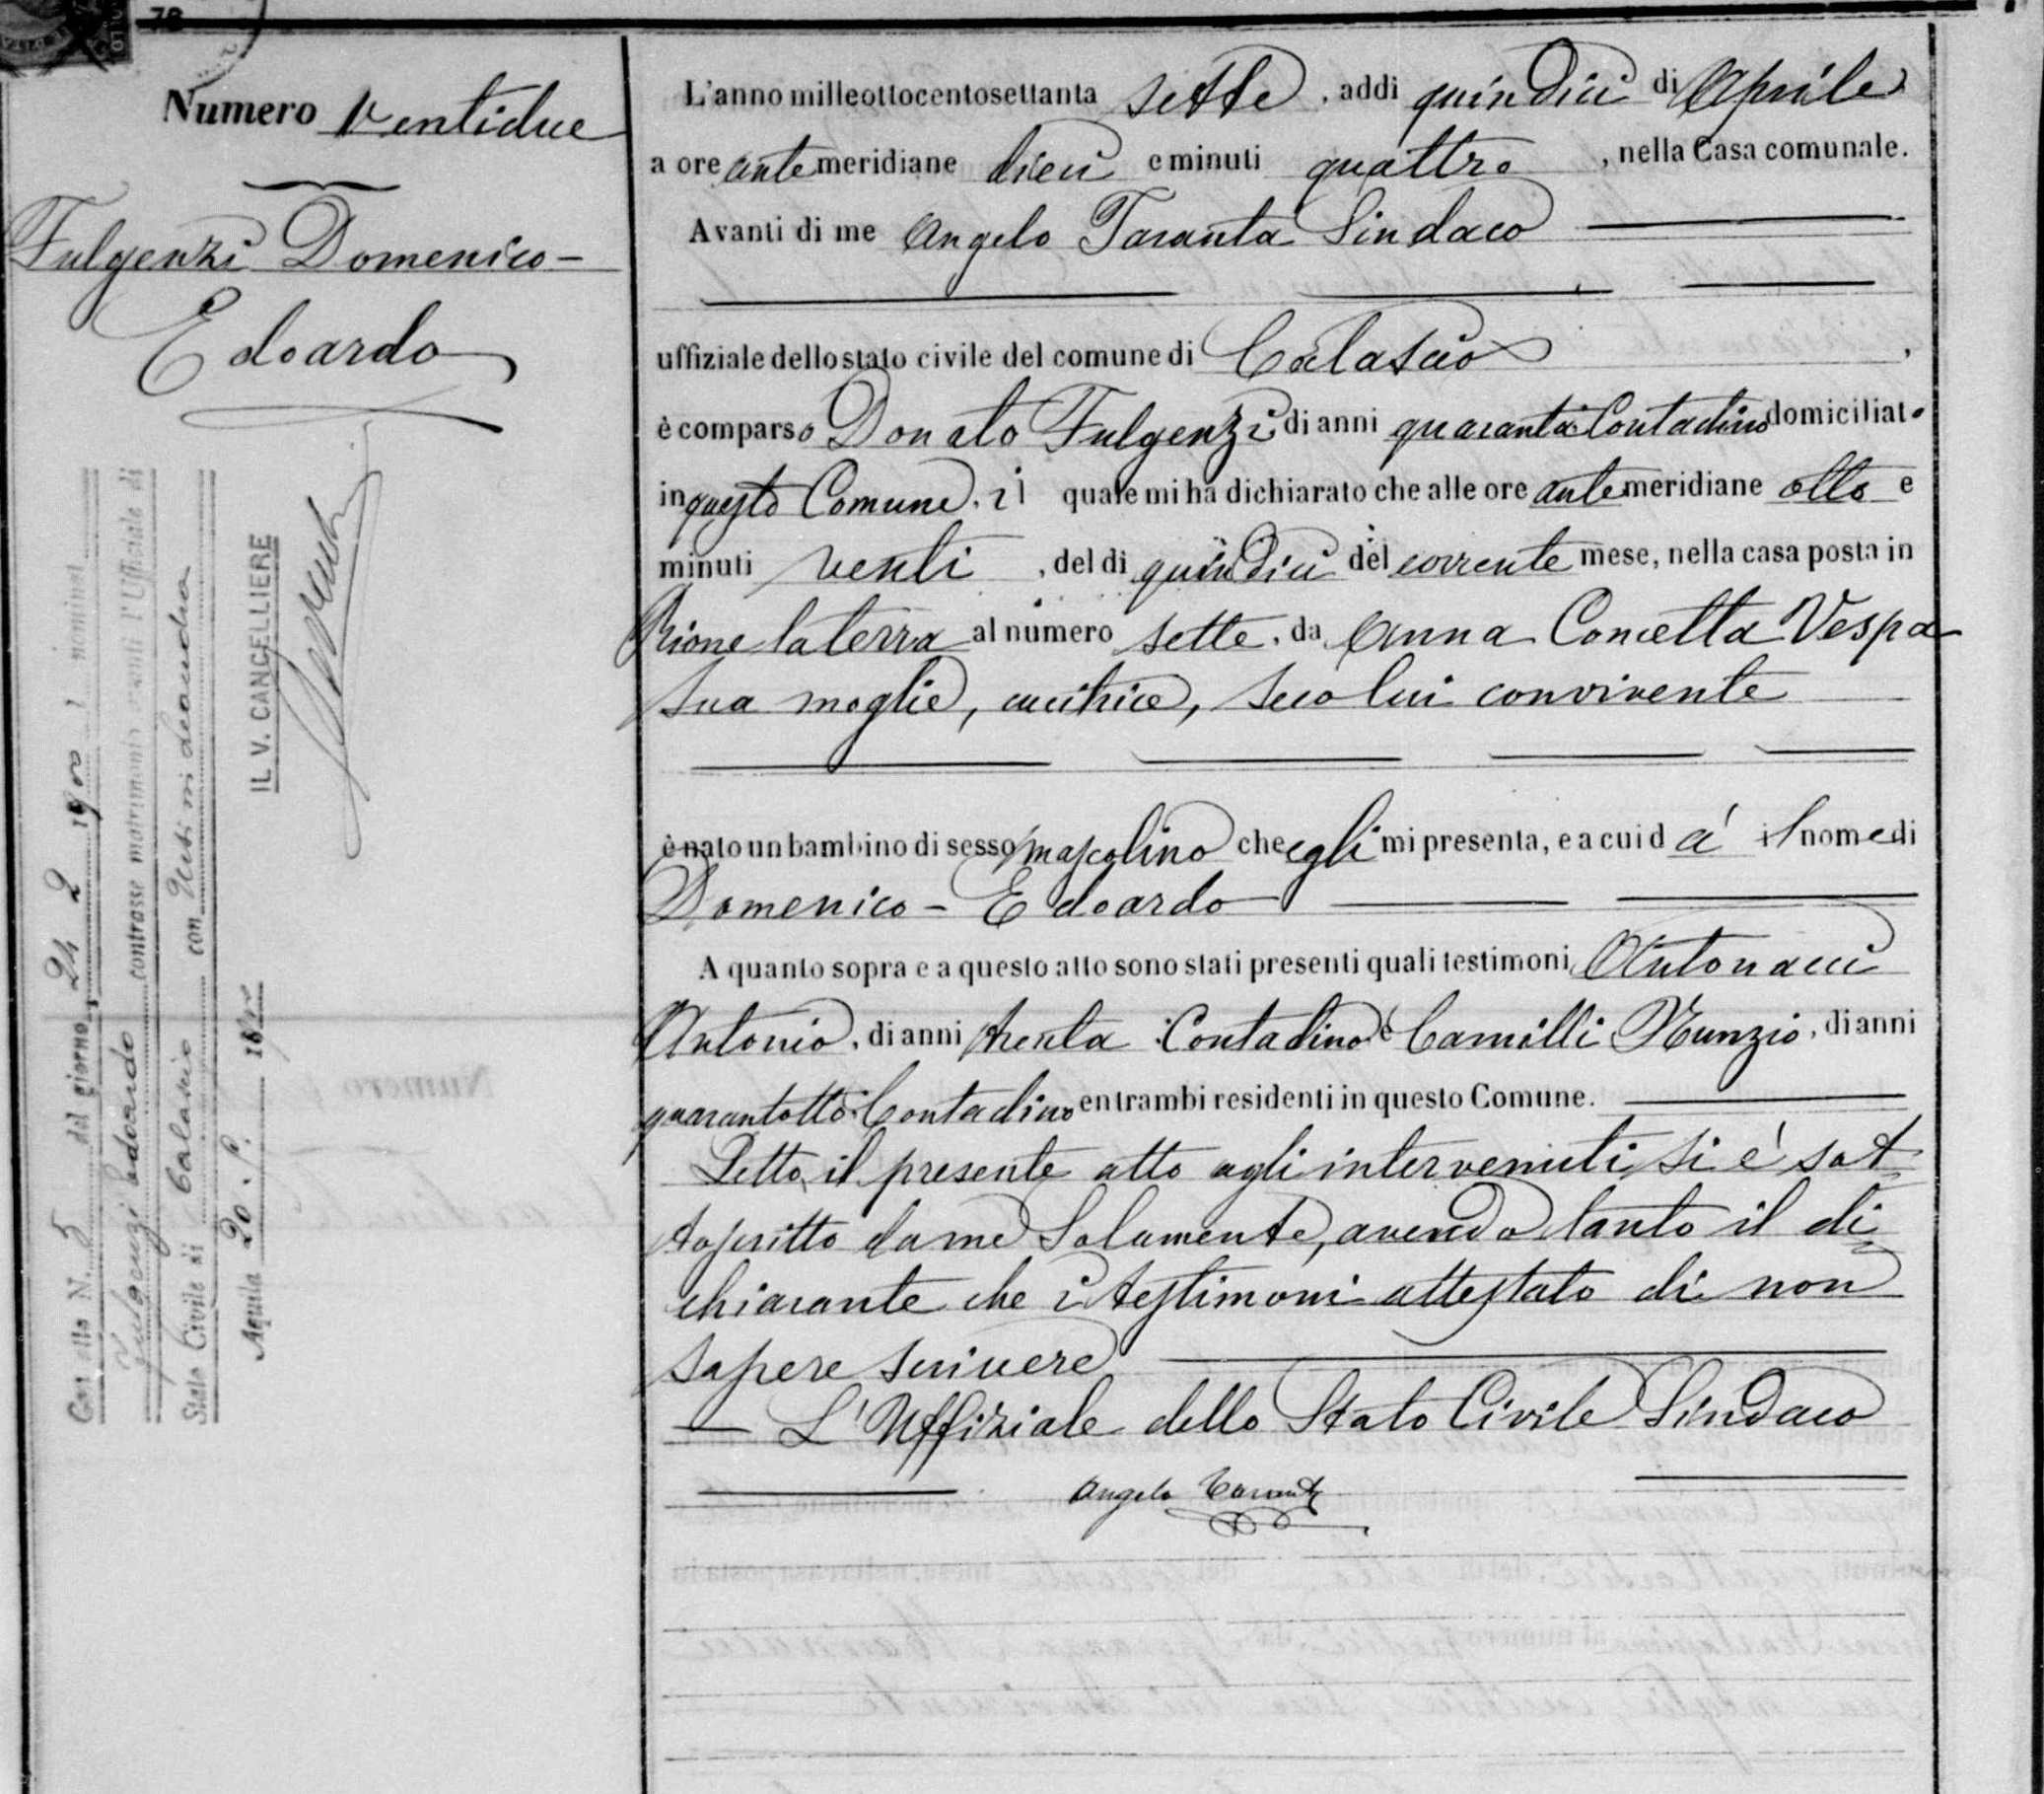 78
Numero Ventidue
Fulgenzi Domenico-
Edoardo
L'anno milleottocentosettanta sette, addì quindici di Aprile
a ore antemeridiane dieci e minuti quattro, nella Casa comunale.
Avanti di me Angelo Taranta Sindaco
uffiziale dello stato civile del comune di Calascio,
è comparso Donato Fulgenzi di anni quaranta Contadino domiciliato
in questo Comune, il quale mi ha dichiarato che alle ore antemeridiane otto e
minuti venti, del dì quindici del corrente mese, nella casa posta in
Rione la terra al numero sette, da Anna Concetta Vespa
sua moglie, cucitrice, seco lui convivente
è nato un bambino di sesso mascolino che egli mi presenta, e a cui dà il nome di
Domenico - Edoardo
A quanto sopra e a questo atto sono stati presenti quali testimoni Antonacci
Antonio, di anni trenta Contadino e Camilli Nunzio, di anni
quarantotto Contadino entrambi residenti in questo Comune.
Letto il presente atto agli intervenuti si è sot
toscritto da me Solamente, avendo tanto il di
chiarante che i testimoni attestato di non
sapere scrivere
L'Uffiziale dello Stato Civile Sindaco
Angelo Taranta
Con atto N. 5 del giorno 24 2 1900 i nominat
Fulgenzi Edoardo contrasse matrimonio avanti l'Ufficiale di
Stato Civile di Calascio con
Aquila 20.
IL V. CANCELLIERE